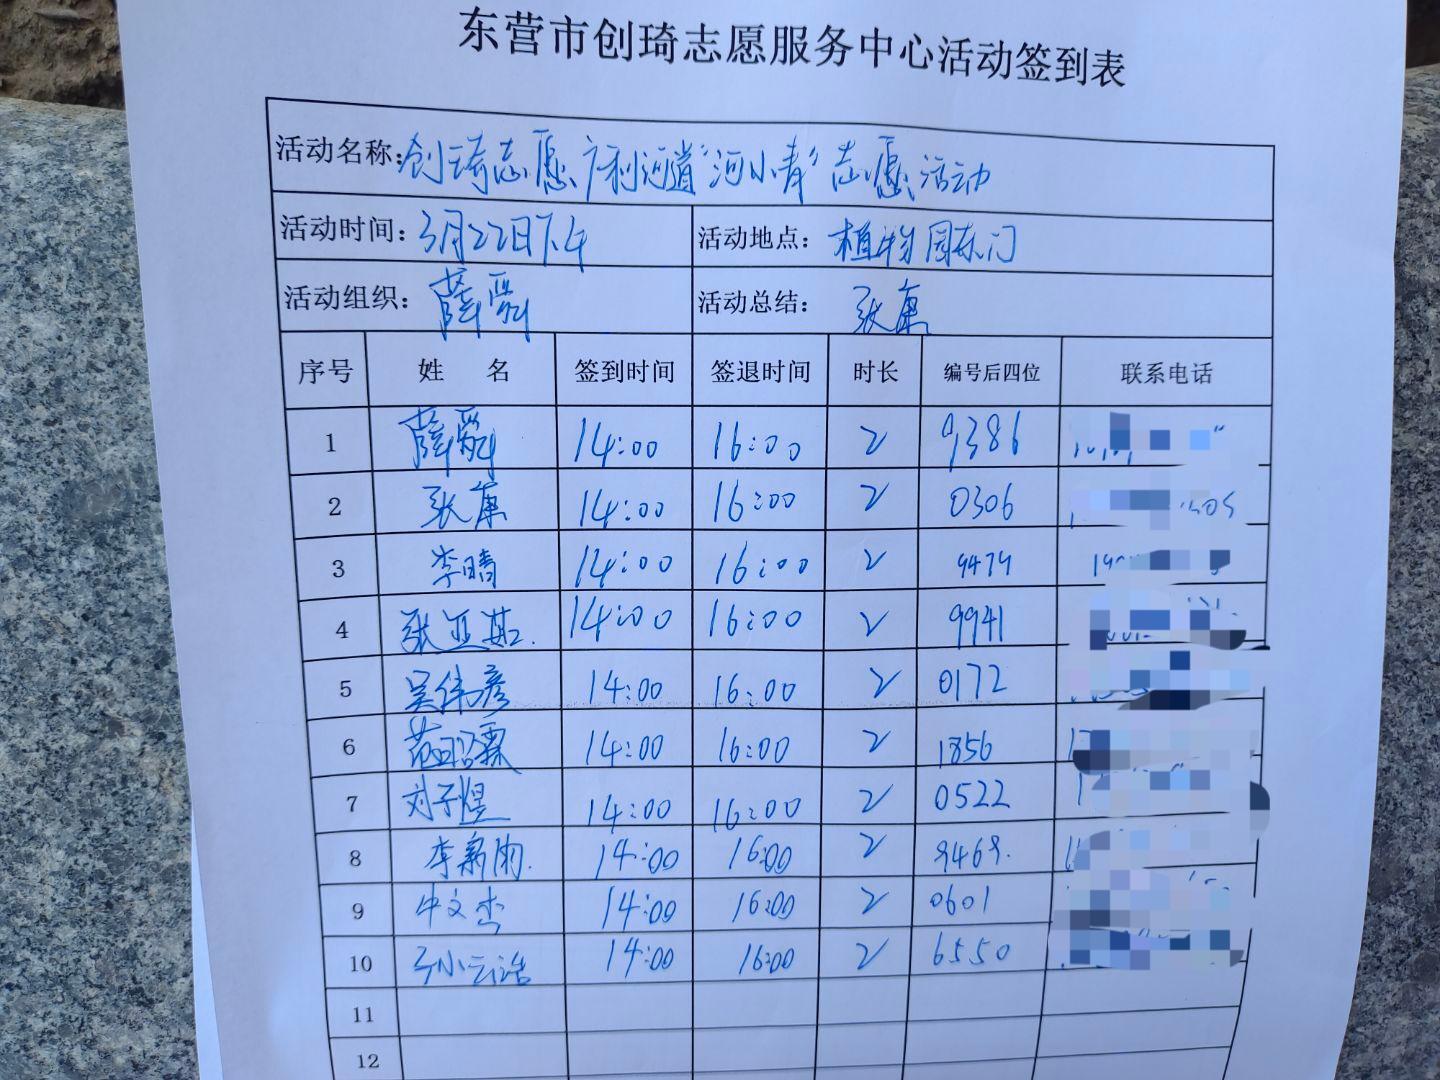 东营市创琦志愿服务中心活动签到表
活动名称:创琦志愿广利河道“河小青”志愿活动
活动时间:3月22日下午 活动地点:植物园东门
活动组织:薛 活动总结:张康
序号 姓 名 签到时间 签退时间 时长 编号后四位 联系电话
1 薛 14:00 16:00 2 9386
2 张康 14:00 16:00 2 0306
3 李晴 14:00 16:00 2 9479
4 张亚茹. 14:00 16:00 2 9941
5 吴伟彦 14:00 16:00 2 0172
6 范昭霖 14:00 16:00 2 1856
7 刘子煜 14:00 16:00 2 0522
8 李雨. 14:00 16:00 2 9469.
9 文杰 14:00 16:00 2 0601
10 孙云浩 14:00 16:00 2 6550
11
12